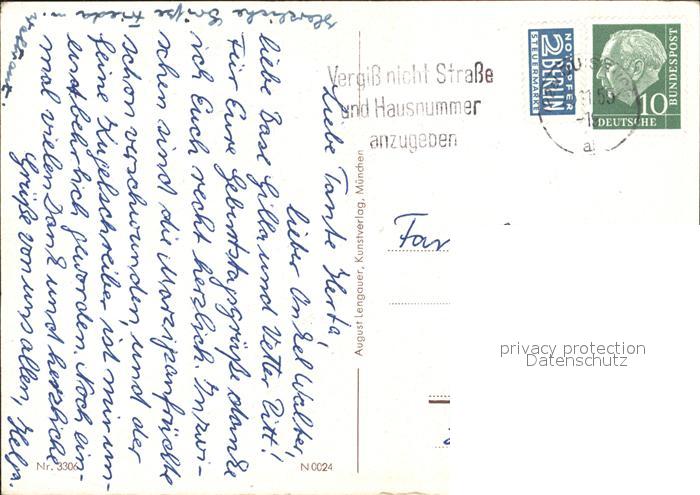 Liebe Tante Herta,
lieber Onkel Walter,
liebe Base Gilla, und Vetter Titt!
Für Eure Geburtstagsgrüße danke
ich Euch recht herzlich. Inzwi-
schen sind die Marzipanfrüchte
schon verschwunden, und der
feine Kugelschreiber ist mir un-
entbehrlich geworden. Noch ein-
mal vielen Dank und herzliche
Grüße von uns allen, Helga.
Herzliche Grüße
Frieda u.
August Lengauer, Kunstverlag, München
Nr. 3306
N 0024
Vergiß nicht Straße
und Hausnummer
anzugeben
NOTOPFER
2 BERLIN
STEUERMARKE
10
DEUTSCHE
BUNDESPOST
a
Fam
privacy protection
Datenschutz